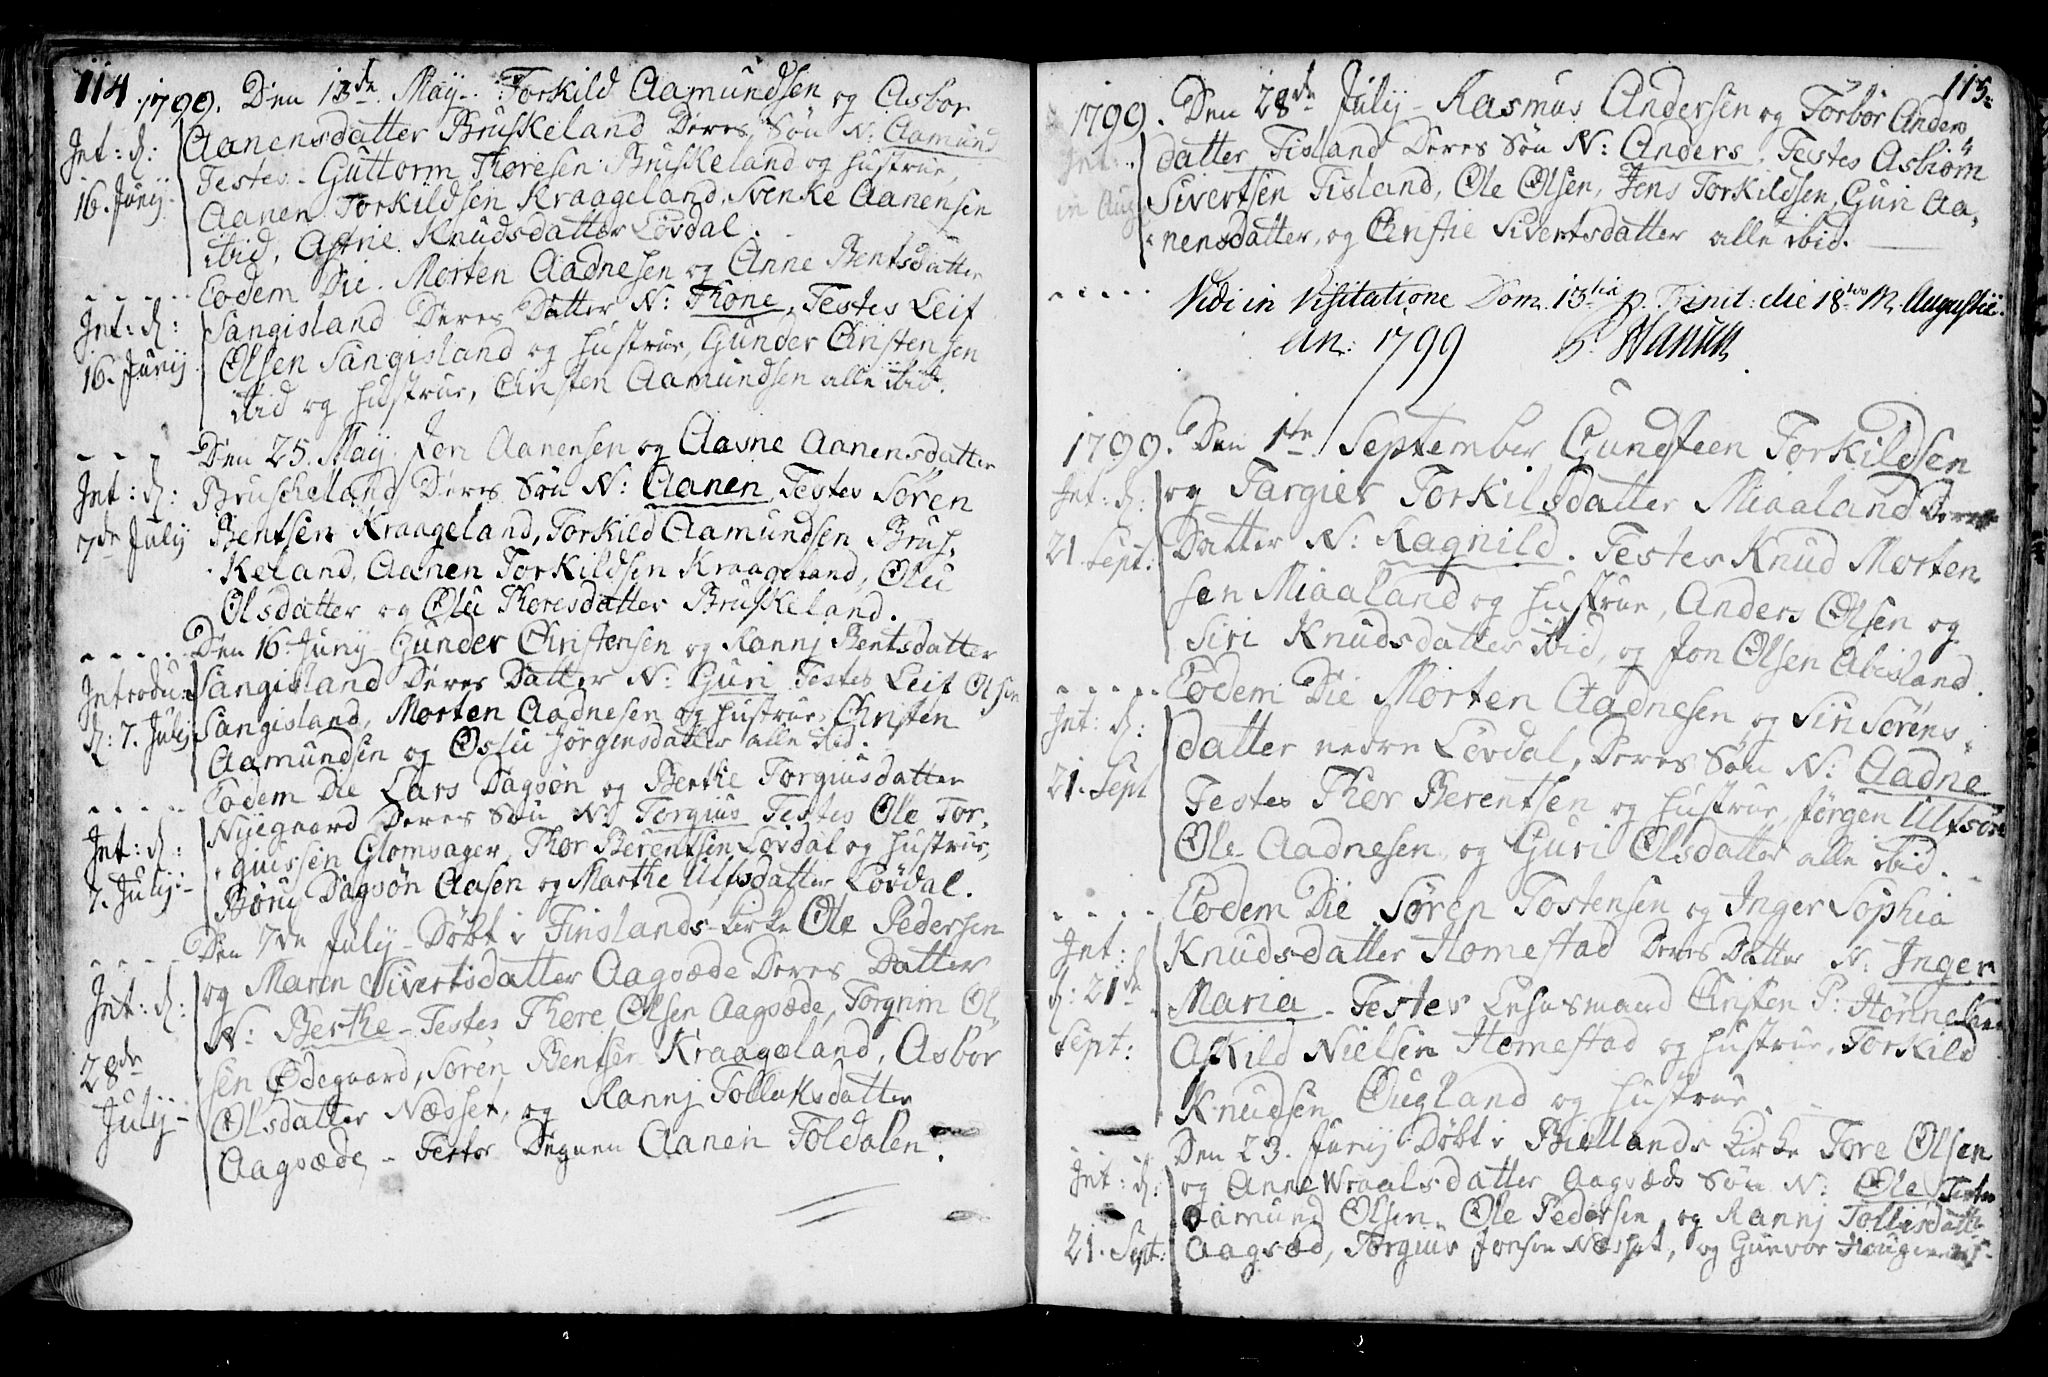 114
1799. Den 13de May. Torkild Aamundsen og Asbor
Int: d: Aanensdatter Bruskeland Deres Søn N: Aamund
Testes Guttorm Thoresen Bruskeland og Hustrue,
16. Junij Aanen Torkildsen Kraageland, Svenke Aanensen
ibid, Astrie Knudsdatter Løvdal.
Eodem Die. Morten Aadnesen og Anne Bentsdatter
Int: d: Sangisland Deres Datter N: Thone, Testes Leif
16. Junij Olsen Sangisland og Hustrue, Gunder Christensen
ibid og Hustrue, Christen Aamundsen alle ibid.
Den 25. Maij. Jon Aanensen og Aavne Aanensdatter
Int: d: Bruskeland Deres Søn N: Aanen Testes Søren
7de Julij Bentsen Kraageland, Torkild Aamundsen Brus-
keland, Aanen Torkildsen Kraageland, Olu
Olsdatter og Olu Thoresdatter Bruskeland.
Den 16 Junij Gunder Christensen og Rannj Bentsdatter
Introdu: Sangisland Deres Datter N: Guri Testes Leif Olsen
d: 7. Julij Sangisland, Morten Aadnesen og Hustrue, Christen
Aamundsen og Øssu Jørgensdatter alle ibid.
Eodem Die Lars Dagsøn og Berthe Torgiusdatter
Int: d: Nyegaard Deres Søn N: Torgius Testes Ole Tor-
giussen Glomsager, Thor Berentsen Løvdal og Hustrue,
7. Julij Børu Dagsøn Aasen og Marthe Ulfsdatter Løvdal.
Den 7de Julij Døbt i Finslands Kirke Ole Pedersen
Int: d: og Maren Sivertsdatter Aagsæde Deres Datter
N: Berthe Testes Thore Olsen Aagsæde, Torgrim Ol-
28de sen Ødegaard, Søren Bentsen Kraageland, Asbor
Julij Olsdatter Næsset, og Rannj Tolluksdatter
Aagsæde, Testes Degnen Aanen Foldalen.
115
1799. Den 28de Julij Rasmus Andersen og Torbor Anders
Int: datter Fisland Deres Søn N: Anders. Testes Asbiørn
in Aug Sivertsen Fisland, Ole Olsen, Jens Torkildsen, Guri Aa-
nensdatter, og Christie Sivertsdatter alle ibid.
Vidi in Visitatione Dom. 13tia p. Trinit: die 18vo M. Augustii.
an: 1799 P. Hansen
1799. Den 1te September Gundsteen Torkildsen
Int: d: og Targier Torkilsdatter Miaaland Deres
21. Sept: Datter N: Ragnild. Testes Knud Morten-
sen Miaaland og Hustrue, Anders Olsen og
Siri Knudsdatter ibid, og Jon Olsen Abisland.
Eodem Die Morten Aadnesen og Siri Sørens-
Int: d: datter nedre Løvdal, Deres Søn N: Aadne
21. Sept Testes Thor Berentsen og Hustrue, Jørgen Ulfsøn
Ole Aadnesen, og Guri Olsdatter alle ibid.
Eodem Die Søren Tostensen og Inger Sophia
Int: Knudsdatter Homestad Deres Datter N: Inger
d: 21de Maria. Testes Lehnsmand Christen P: Hønneland
Sept: Askild Nielsen Homestad og Hustrue, Torkild
Knudsen Øugland og Hustrue.
Den 23. Junij Døbt i Biellands Kirke Tore Olsen
Int: d: og Anne Wraalsdatter Aagsæde Søn N: Ole Testes
Aamund Olsen, Ole Pedersen, og Rannj Tollisdatter
21. Sept: Aagsæd, Torgius Jonsen Næsset, og Gunvor